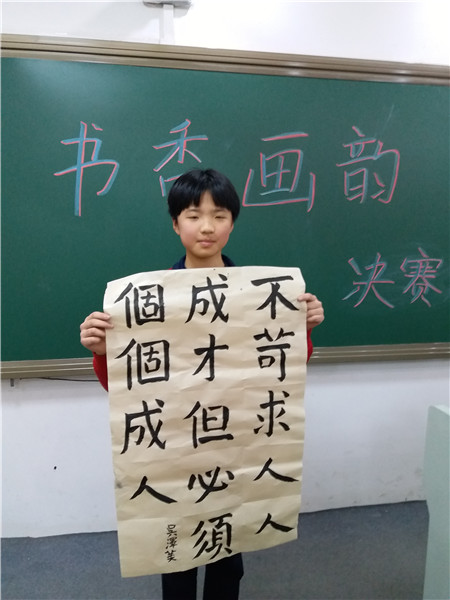 书香画韵
决赛
不苛求人人
成才但必须
個個成人
吳澤芙